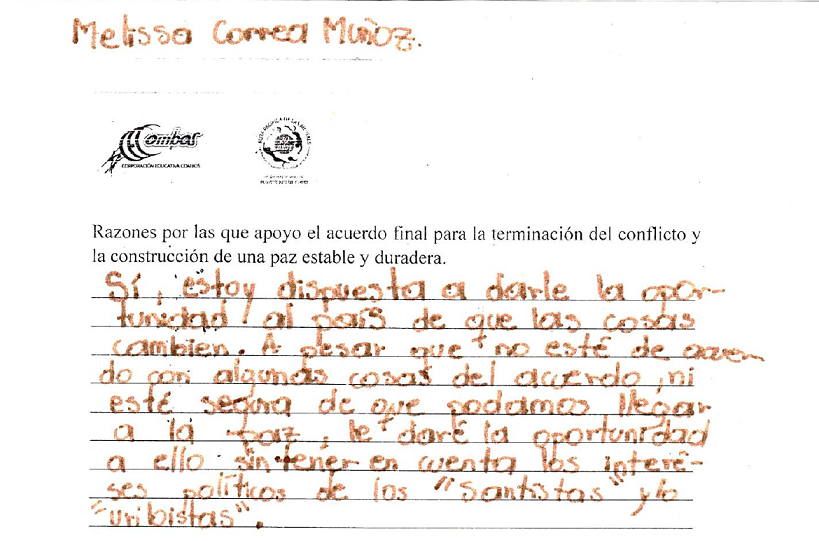 Melissa Correa Muñoz.
Combos
CORPORACIÓN EDUCATIVA COMBOS
RUTA PACÍFICA DE LAS MUJERES
Razones por las que apoyo el acuerdo final para la terminación del conflicto y
la construcción de una paz estable y duradera.
Sí, estoy dispuesta a darle la opor-
tunidad al país de que las cosas
cambien. A pesar que no esté de acuer
do con algunas cosas del acuerdo, ni
esté segura de que podamos llegar
a la paz, le daré la oportunidad
a ello sin tener en cuenta los intere-
ses políticos de los "Santistas" y/o
"uribistas".